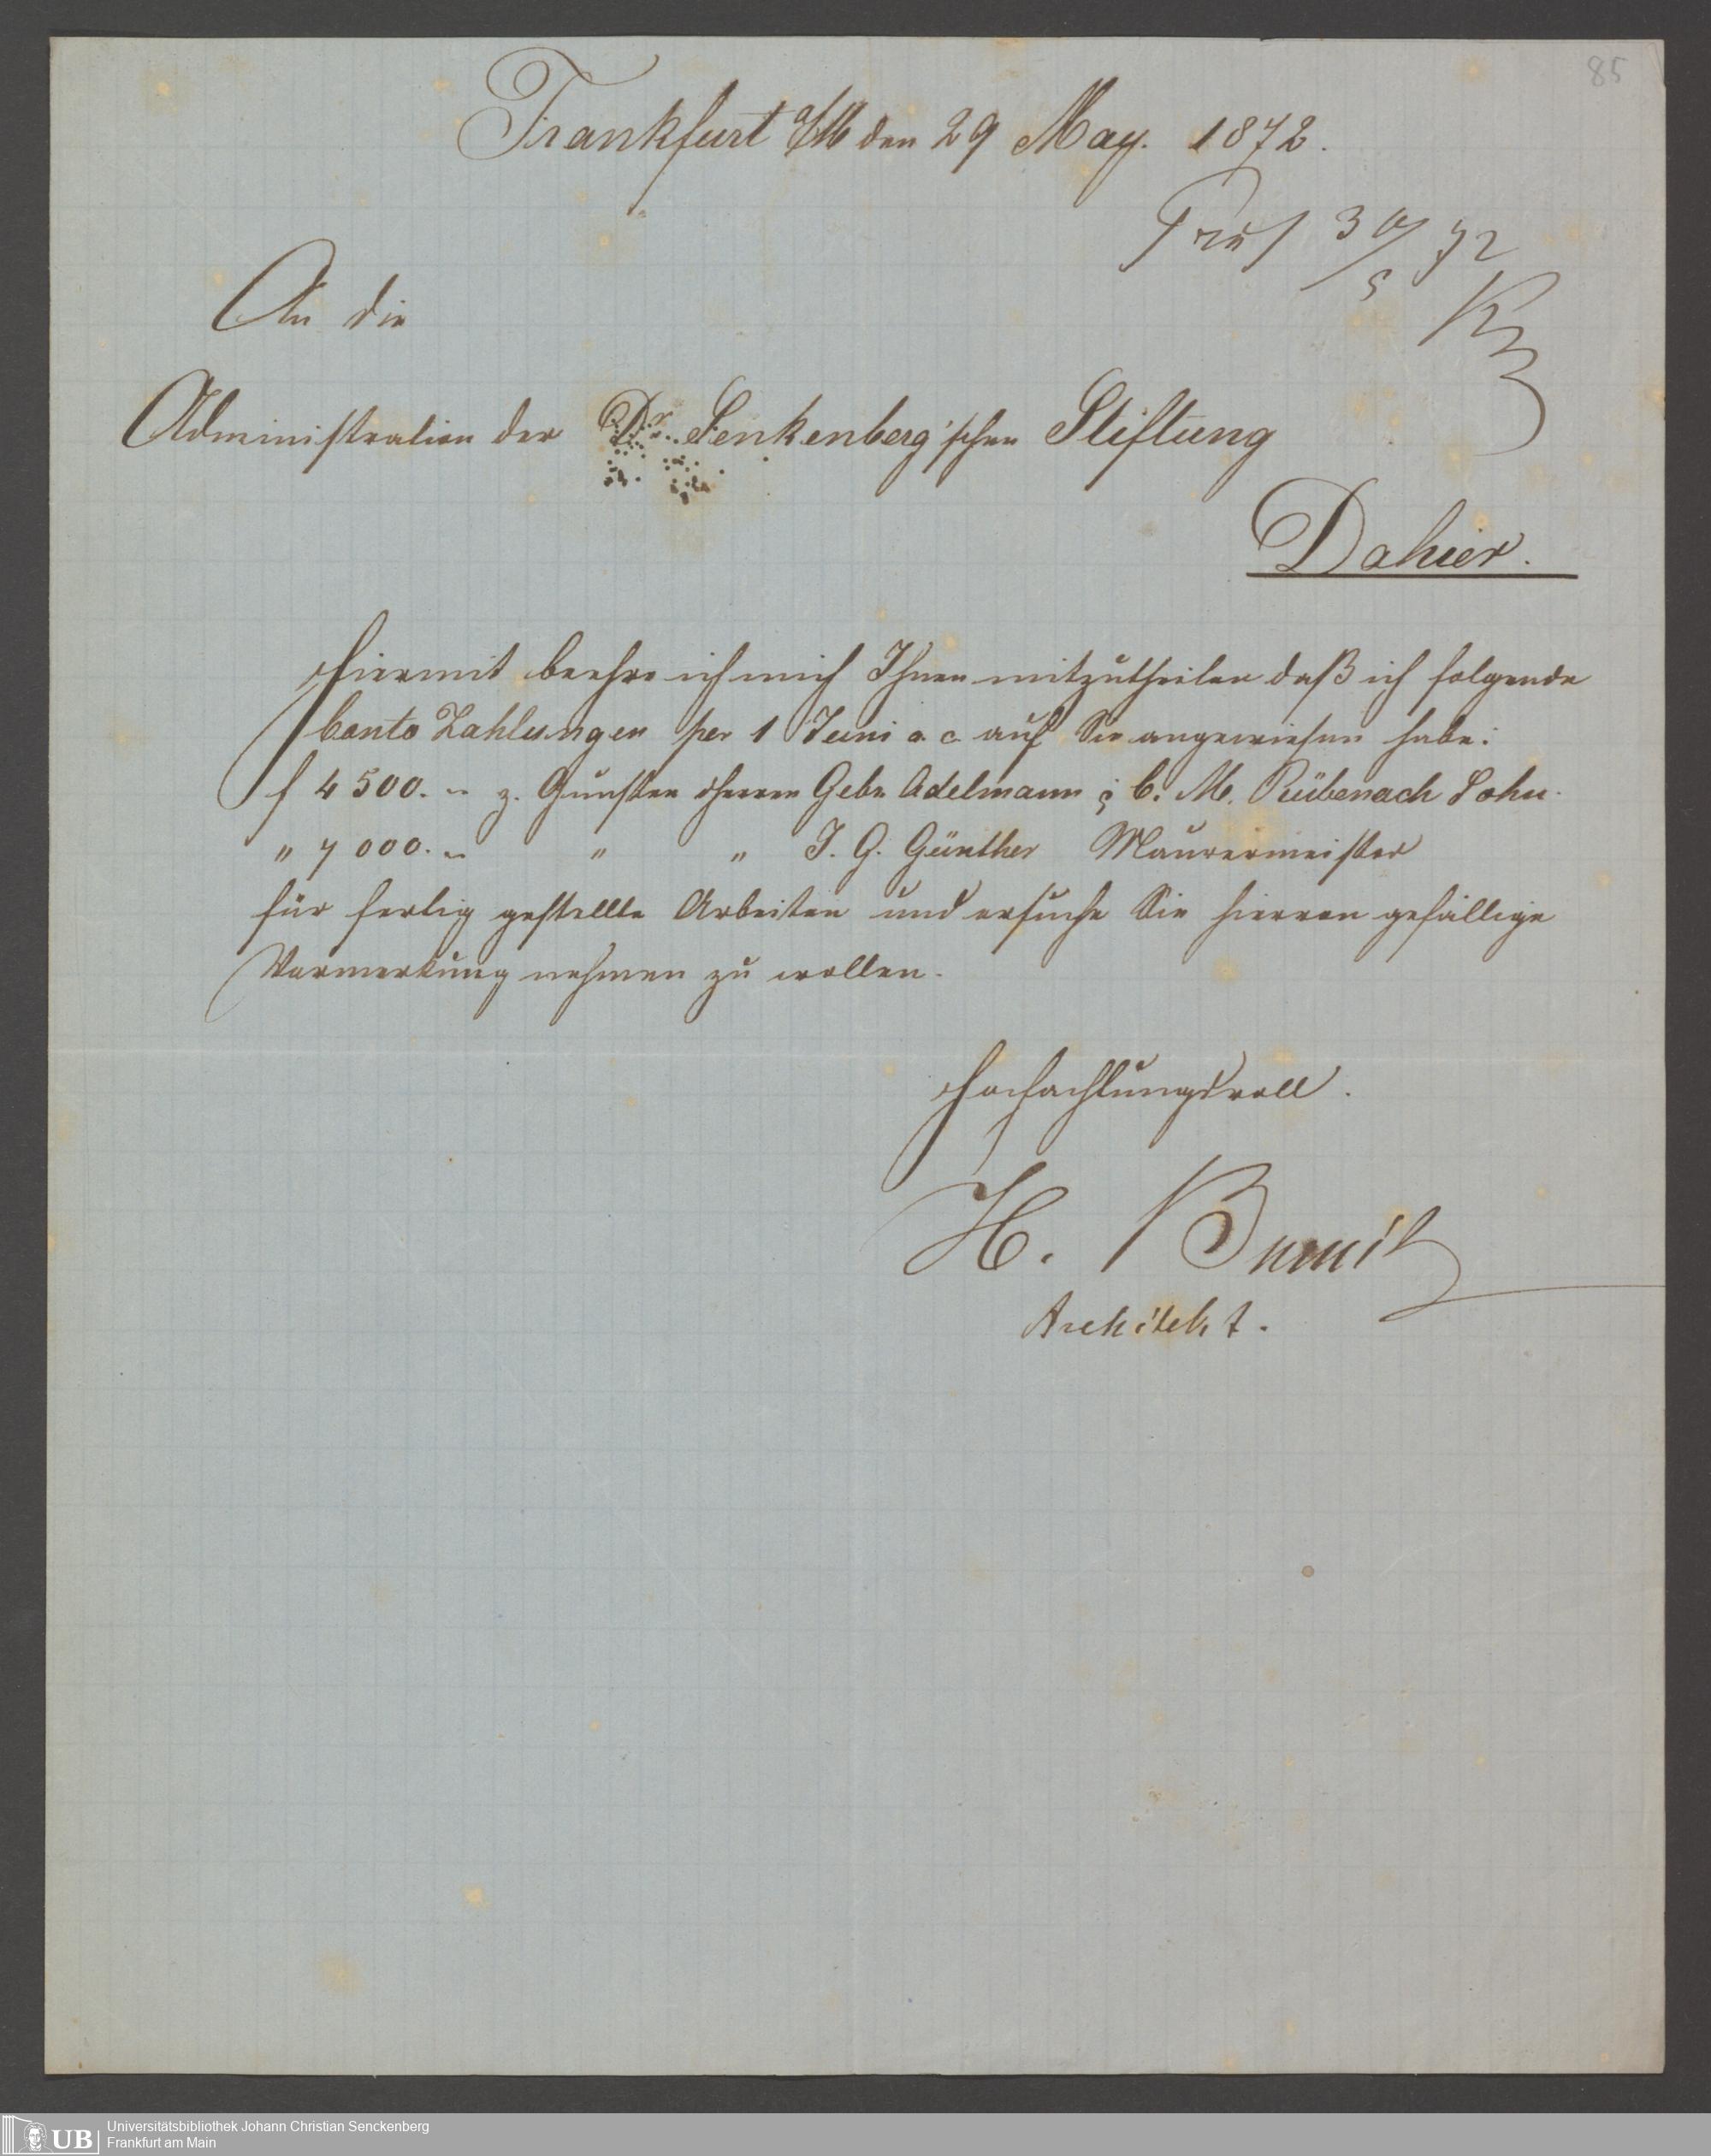 85
Frankfurt a/M den 29 May. 1872.
Präs 30/5 72
An die
Administration der Dr. Senkenberg'schen Stiftung
Dahier.
Hiermit beehre ich mich Ihnen mitzutheilen daß ich folgende
Conto Zahlungen per 1 Juni a. c. auf Sie angewiesen habe:
f 4500. – z. Gunsten Herren Gebr. Adelmann & C. M. Rübenach Sohn.
" 7000. – " " J. G. Günther Maurermeister
für fertig gestellte Arbeiten und ersuche Sie hiervon gefällige
Vormerkung nehmen zu wollen.
Hochachtungsvoll.
H. Burnitz
Architekt.
UB
Universitätsbibliothek Johann Christian Senckenberg
Frankfurt am Main